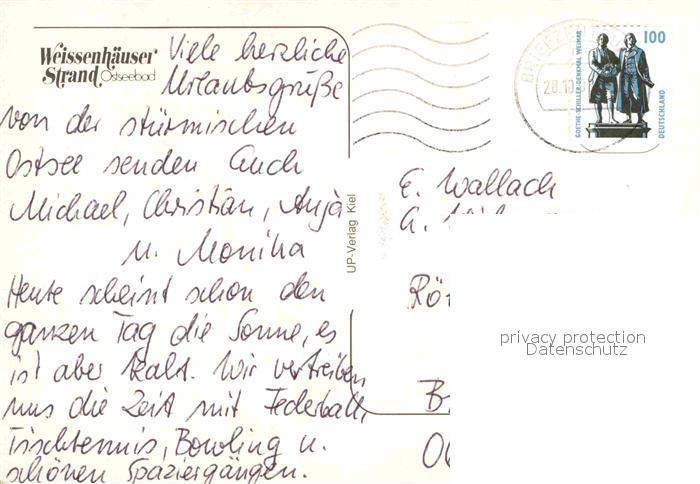 Weissenhäuser
Strand Ostseebad
Viele herzliche
Urlaubsgrüße
von der stürmischen
Ostsee senden Euch
Michael, Christian, Anja
u. Monika
Heute scheint schon den
ganzen Tag die Sonne, es
ist aber kalt. Wir vertreiben
uns die Zeit mit Federball,
Tischtennis, Bowling u.
schönen Spaziergängen.
UP-Verlag Kiel
28.10
GOETHE-SCHILLER-DENKMAL WEIMAR
100
DEUTSCHLAND
E. Wallach
privacy protection
Datenschutz